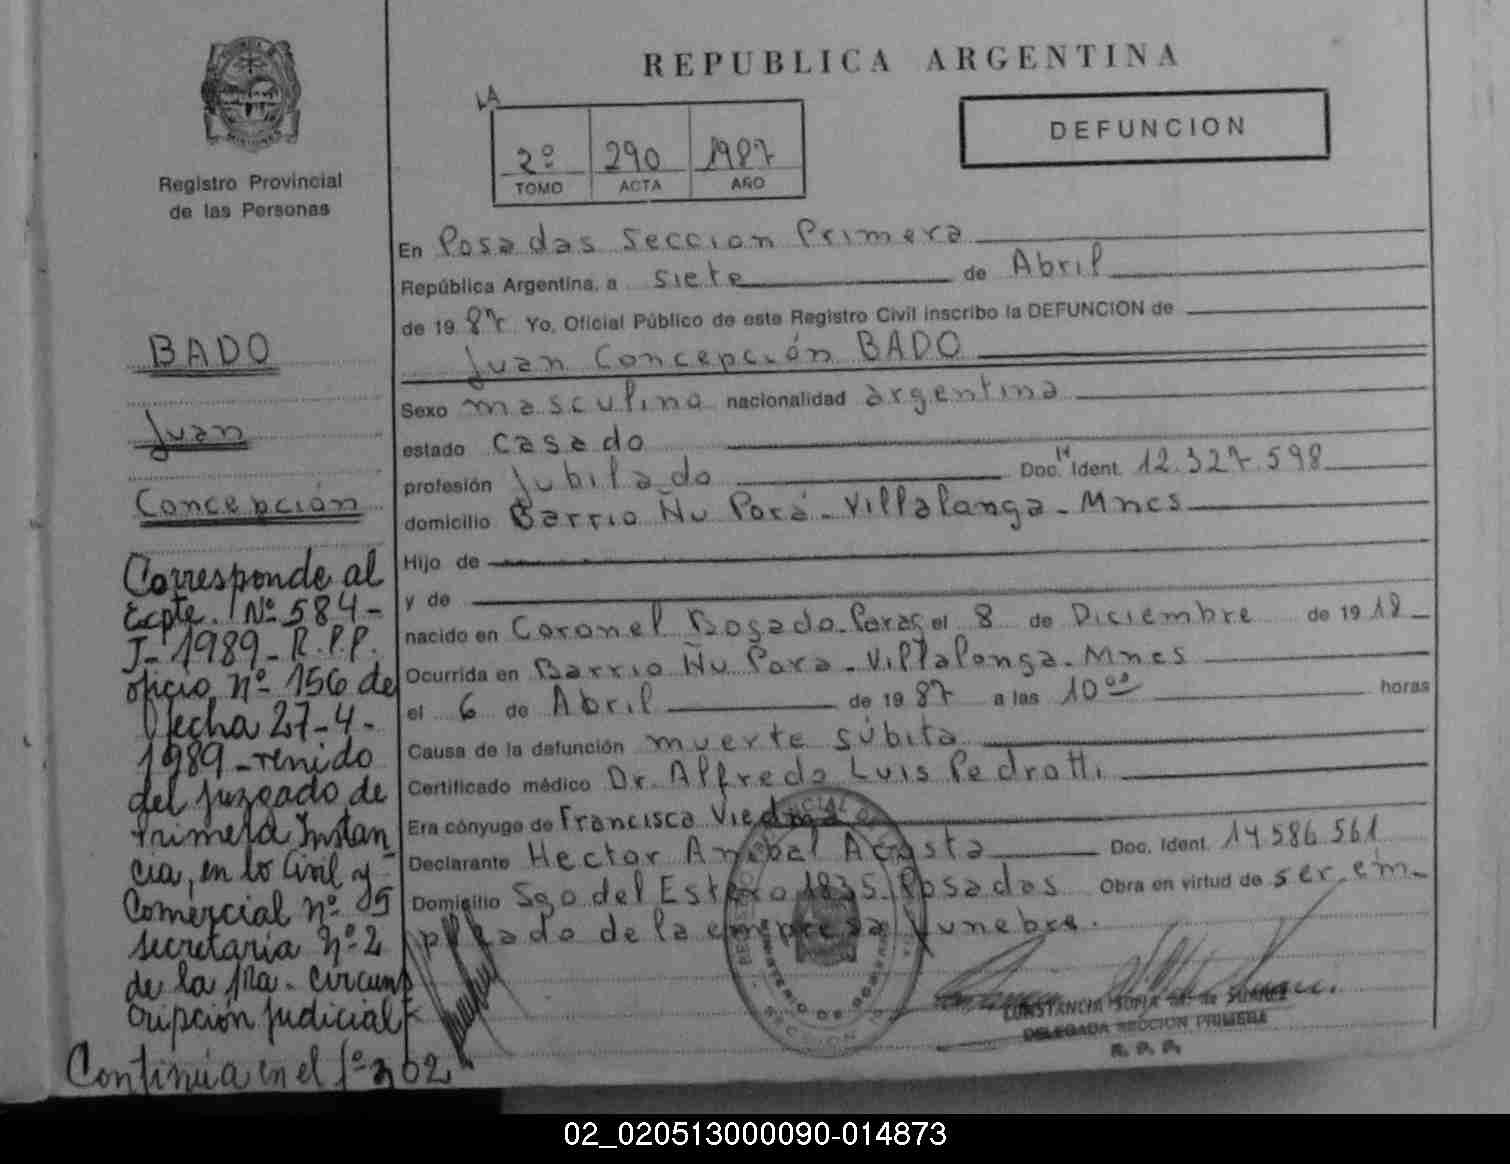 REPUBLICA ARGENTINA
LA
2º 290 1987
TOMO ACTA AÑO
DEFUNCION
Registro Provincial
de las Personas
BADO
Juan
Concepción
Corresponde al
Ecpte. Nº 584-
J-1989-R.P.P.
oficio nº 156 de
fecha 27-4-
1989-renido
del juzgado de
Primera Instan
cia, en lo Civil y
Comercial nº 5
secretaria Nº 2
de la 1ra. circuns
cripción judicial
Continúa en el fº 202
En Posadas Sección Primera
República Argentina, a siete de Abril
de 1987 Yo, Oficial Público de este Registro Civil inscribo la DEFUNCION de
Juan Concepción BADO
Sexo masculino nacionalidad argentina
estado casado
profesión Jubilado Doc. Ident. 12.327.598
domicilio Barrio Ñu Porá - Villalonga - Mnes
Hijo de
y de
nacido en Coronel Bogado - Parag el 8 de Diciembre de 1918
Ocurrida en Barrio Ñu Porá - Villalonga - Mnes
el 6 de Abril de 1987 a las 10⁰⁰ horas
Causa de la defunción muerte súbita
Certificado médico Dr. Alfredo Luis Pedrotti
Era cónyuge de Francisca Viedma
Declarante Hector Anibal Acosta Doc. Ident. 14.586.561
Domicilio Sgo del Estero 1835 Posadas Obra en virtud de ser em-
pleado de la empresa funebre.
CONSTANCIA SOFIA de SUAREZ
DELEGADA SECCION PRIMERA
R. P. P.
02_020513000090-014873